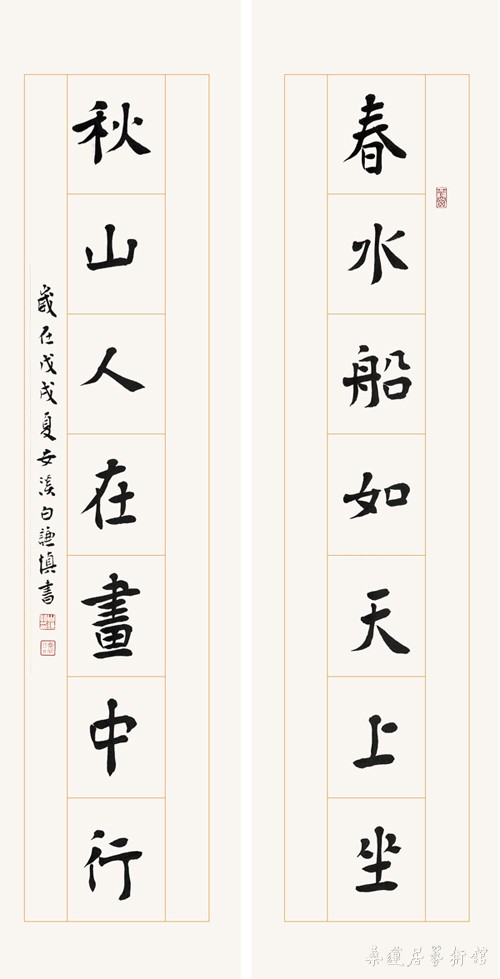 春水船如天上坐
秋山人在畫中行
歲在戊戌夏安溪白謙慎書
桑蓮居藝術館